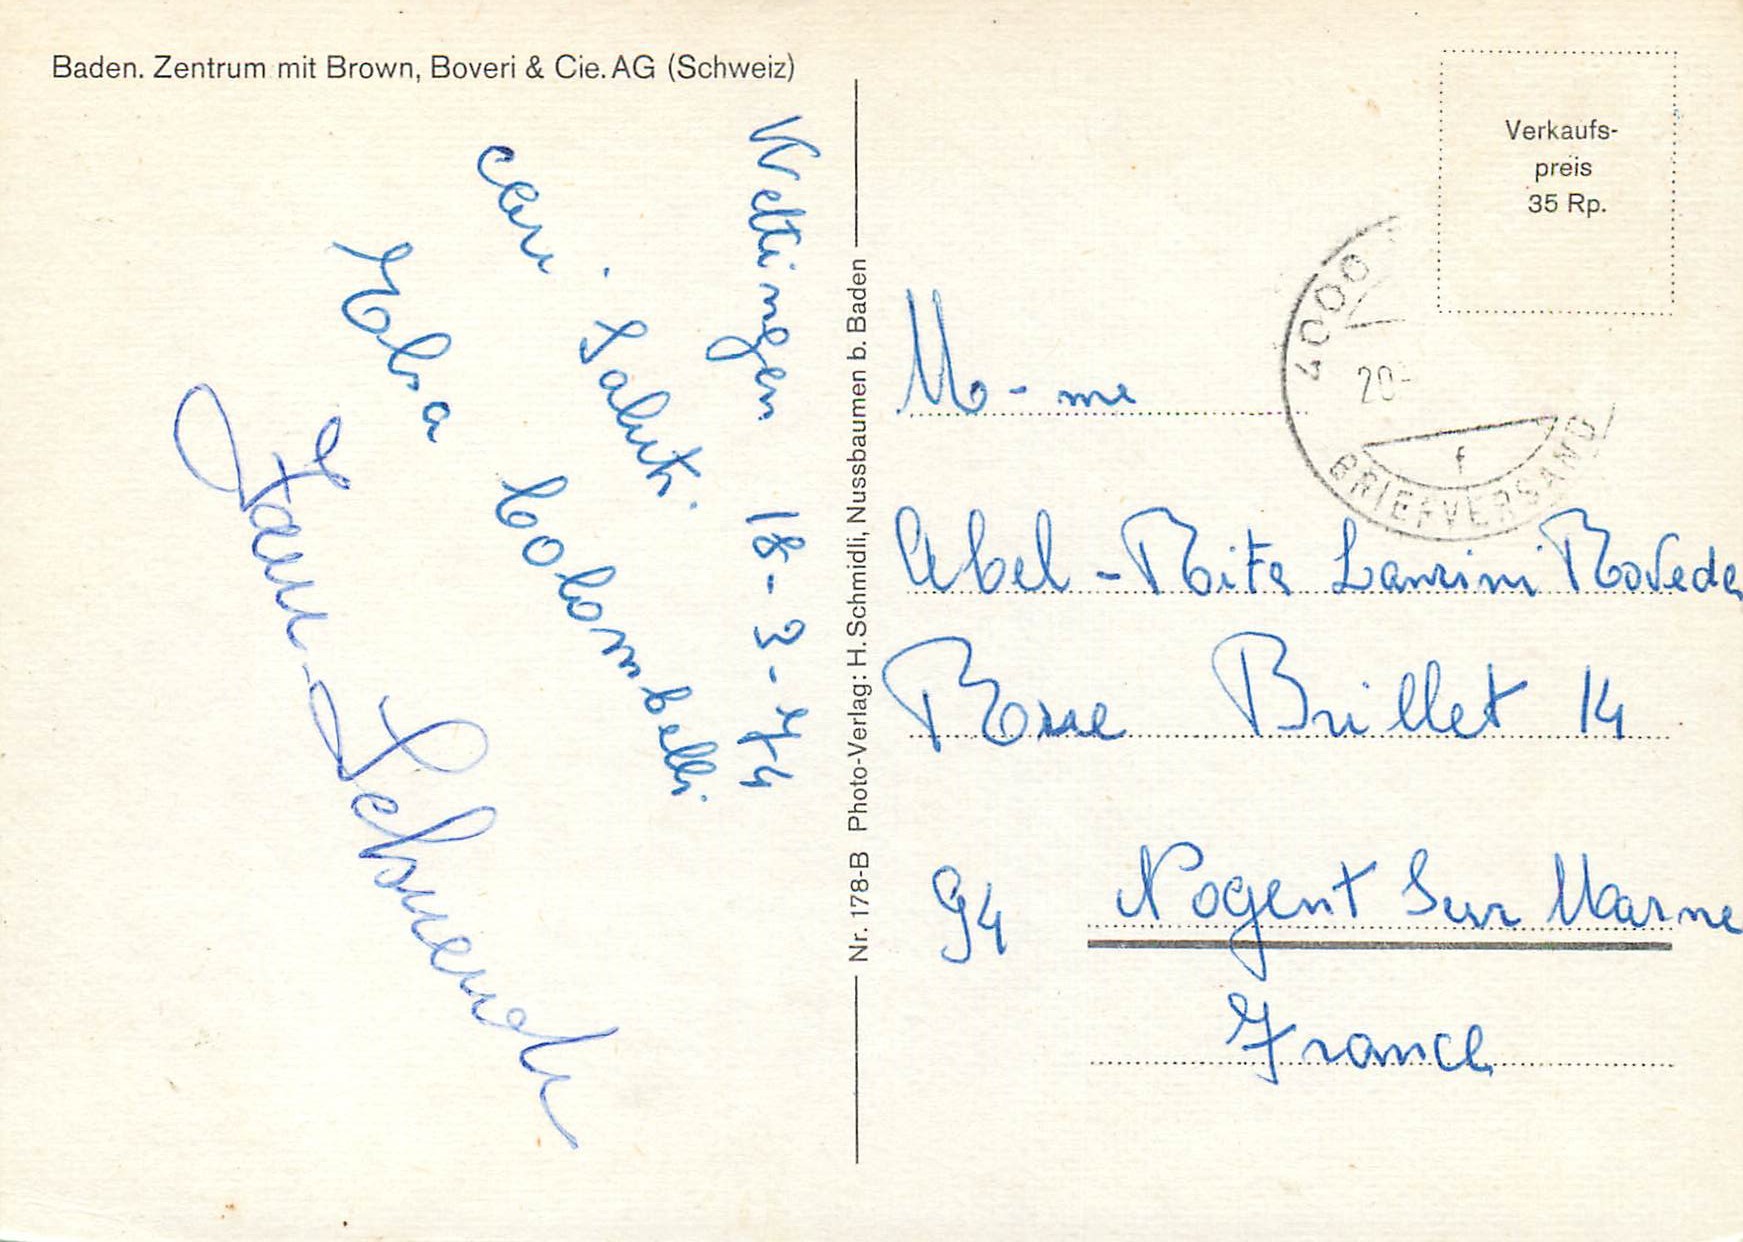 Baden. Zentrum mit Brown, Boveri & Cie. AG (Schweiz)
Wettingen 18-3-74
cari saluti.
Elsa Colombelli
Nr. 178-B Photo-Verlag: H. Schmidli, Nussbaumen b. Baden
Verkaufs-
preis
35 Rp.
4000
20-
f
BRIEFVERSAND
M-me
Abel-Rita Lanzini Roveda
Rue Brillet 14
94 Nogent Sur Marne
France